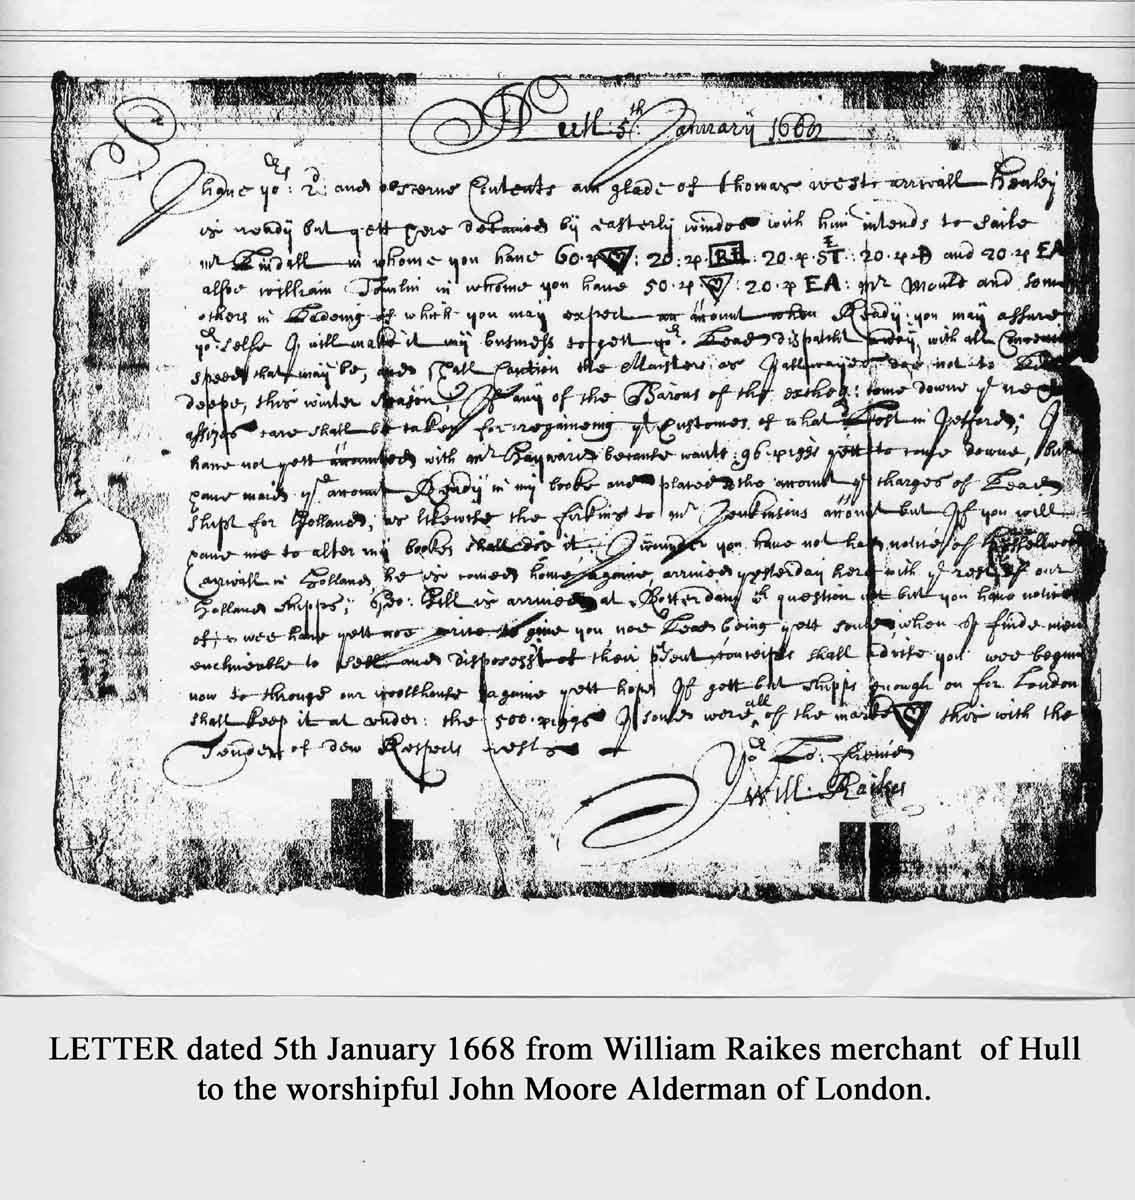 Sr Hull: 5th January 1668
I haue yors: 2d: and obserue Contents am glade of thomas wests arriuall Henley
is ready but yett here detained by easterly windes with him intends to saile
mr Tindall in whome you haue 60.p : 20: p RE : 20.p. ST : 20.p and 20.p EA
alsoe william Tomlin in whome you haue 50.p : 20.p EA: mr and some
others in Ladeing of which you may expect an account when Ready: you may assure
yor: selfe I will make it my business to gett yor. Lead dispatcht away, with all
speed that may be, and shall Caution the Masters as I allwayes doe not to
deepe, this winter season, If any of the Barons of the excheqr: come downe ye next
assizes care shall be taken for regaineing ye Customes of what Lost in
haue not yett accounted with mr Hayward because wants: 96. piggs yett to come downe, but
haue made yr account Ready in my booke and placed the account ye charges of Lead
shipt for Holland; as likewise the firkins to mr Jenkinsons account but If you will
haue me to alter my bookes shall doe it; I wounder you haue not had notice of
arriuall in Holland, he is comed home againe, arriued yesterday here with ye rest of our
Holland shipps; Geo: Hill is arriued at Rotterdam question not but you haue notice
of: wee haue yett noe to giue you, noe Lead being yett sould, when I finde men
enclinable to sell and disposesst of their prsent conceipts shall advise you wee begine
now to thronge our woolhouse againe yett hope If gett but shipps enough on for London
shall keep it at under: the 500. piggs I sould were all of the marke this with the
Tender of dew Respects rests
Yor Lo: Freind
Will: Raikes
LETTER dated 5th January 1668 from William Raikes merchant of Hull
to the worshipful John Moore Alderman of London.